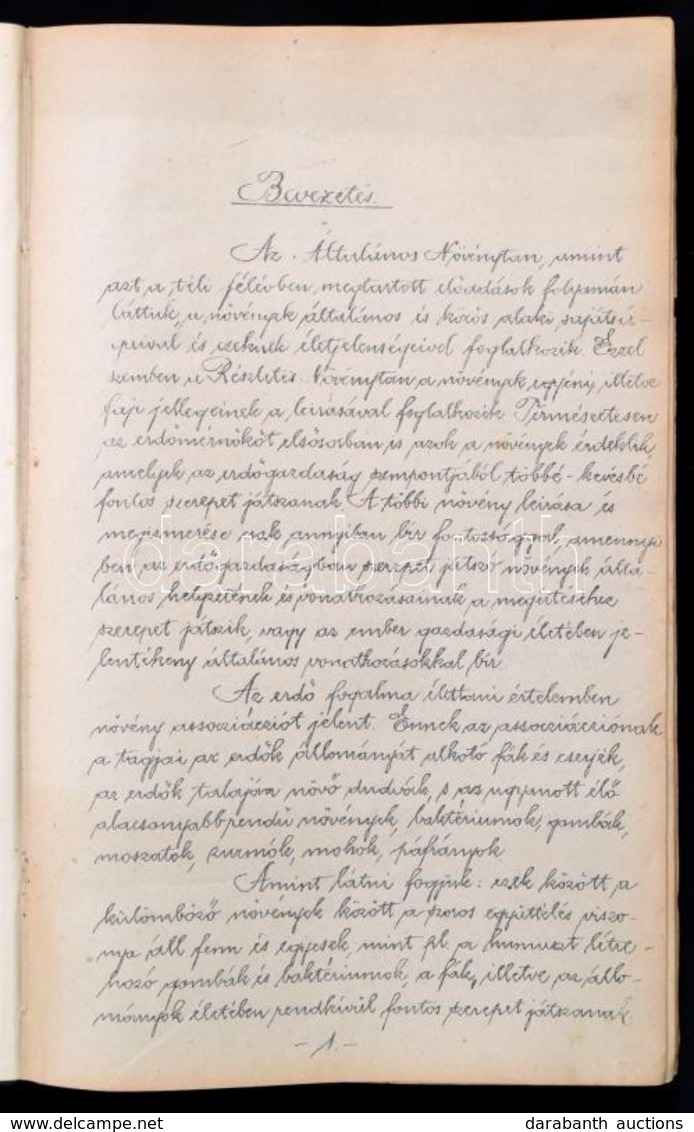 Bevezetés.
Az Általános Növénytan, amint
azt a téli félévben megtartott előadások folyamán
láttuk, a növények általános és közös alaki sajátsá-
gaival és ezeknek életjelenségeivel foglalkozik. Ezzel
szemben a Részletes Növénytan a növények egyéni, illetve
faji jellegeinek a leirásával foglalkozik. Természetesen
az erdőmérnököt elsősorban is azok a növények érdeklik,
amelyek az erdőgazdaság szempontjából többé-kevésbé
fontos szerepet játszanak. A többi növény leirása és
megismerése csak annyiban bir fontossággal, amennyi
ben az erdőgazdaságban szerepet játszó növények álta-
lános helyzetének és vonatkozásainak a megértéséhez
szerepet játszik, vagy az ember gazdasági életében je-
lentékeny általános vonatkozásokkal bir.
Az erdő fogalma élettani értelemben
növény associációt jelent. Ennek az associációnak
a tagjai az erdők állományát alkotó fák és cserjék,
az erdők talaján növő dudvák, s az ugyanott élő
alacsonyabbrendű növények, baktériumok, gombák,
moszatok, zuzmók, mohok, páfrányok
Amint látni fogjuk: ezek között a
külömböző növények között a szoros együttélés viszo-
nya áll fenn és egyesek, mint pl. a humuszt létre-
hozó gombák és baktériumok, a fák, illetve az állo-
mányok életében rendkívül fontos szerepet játszanak.
-1.-
darabanth
www.delcampe.net
darabanth auctions